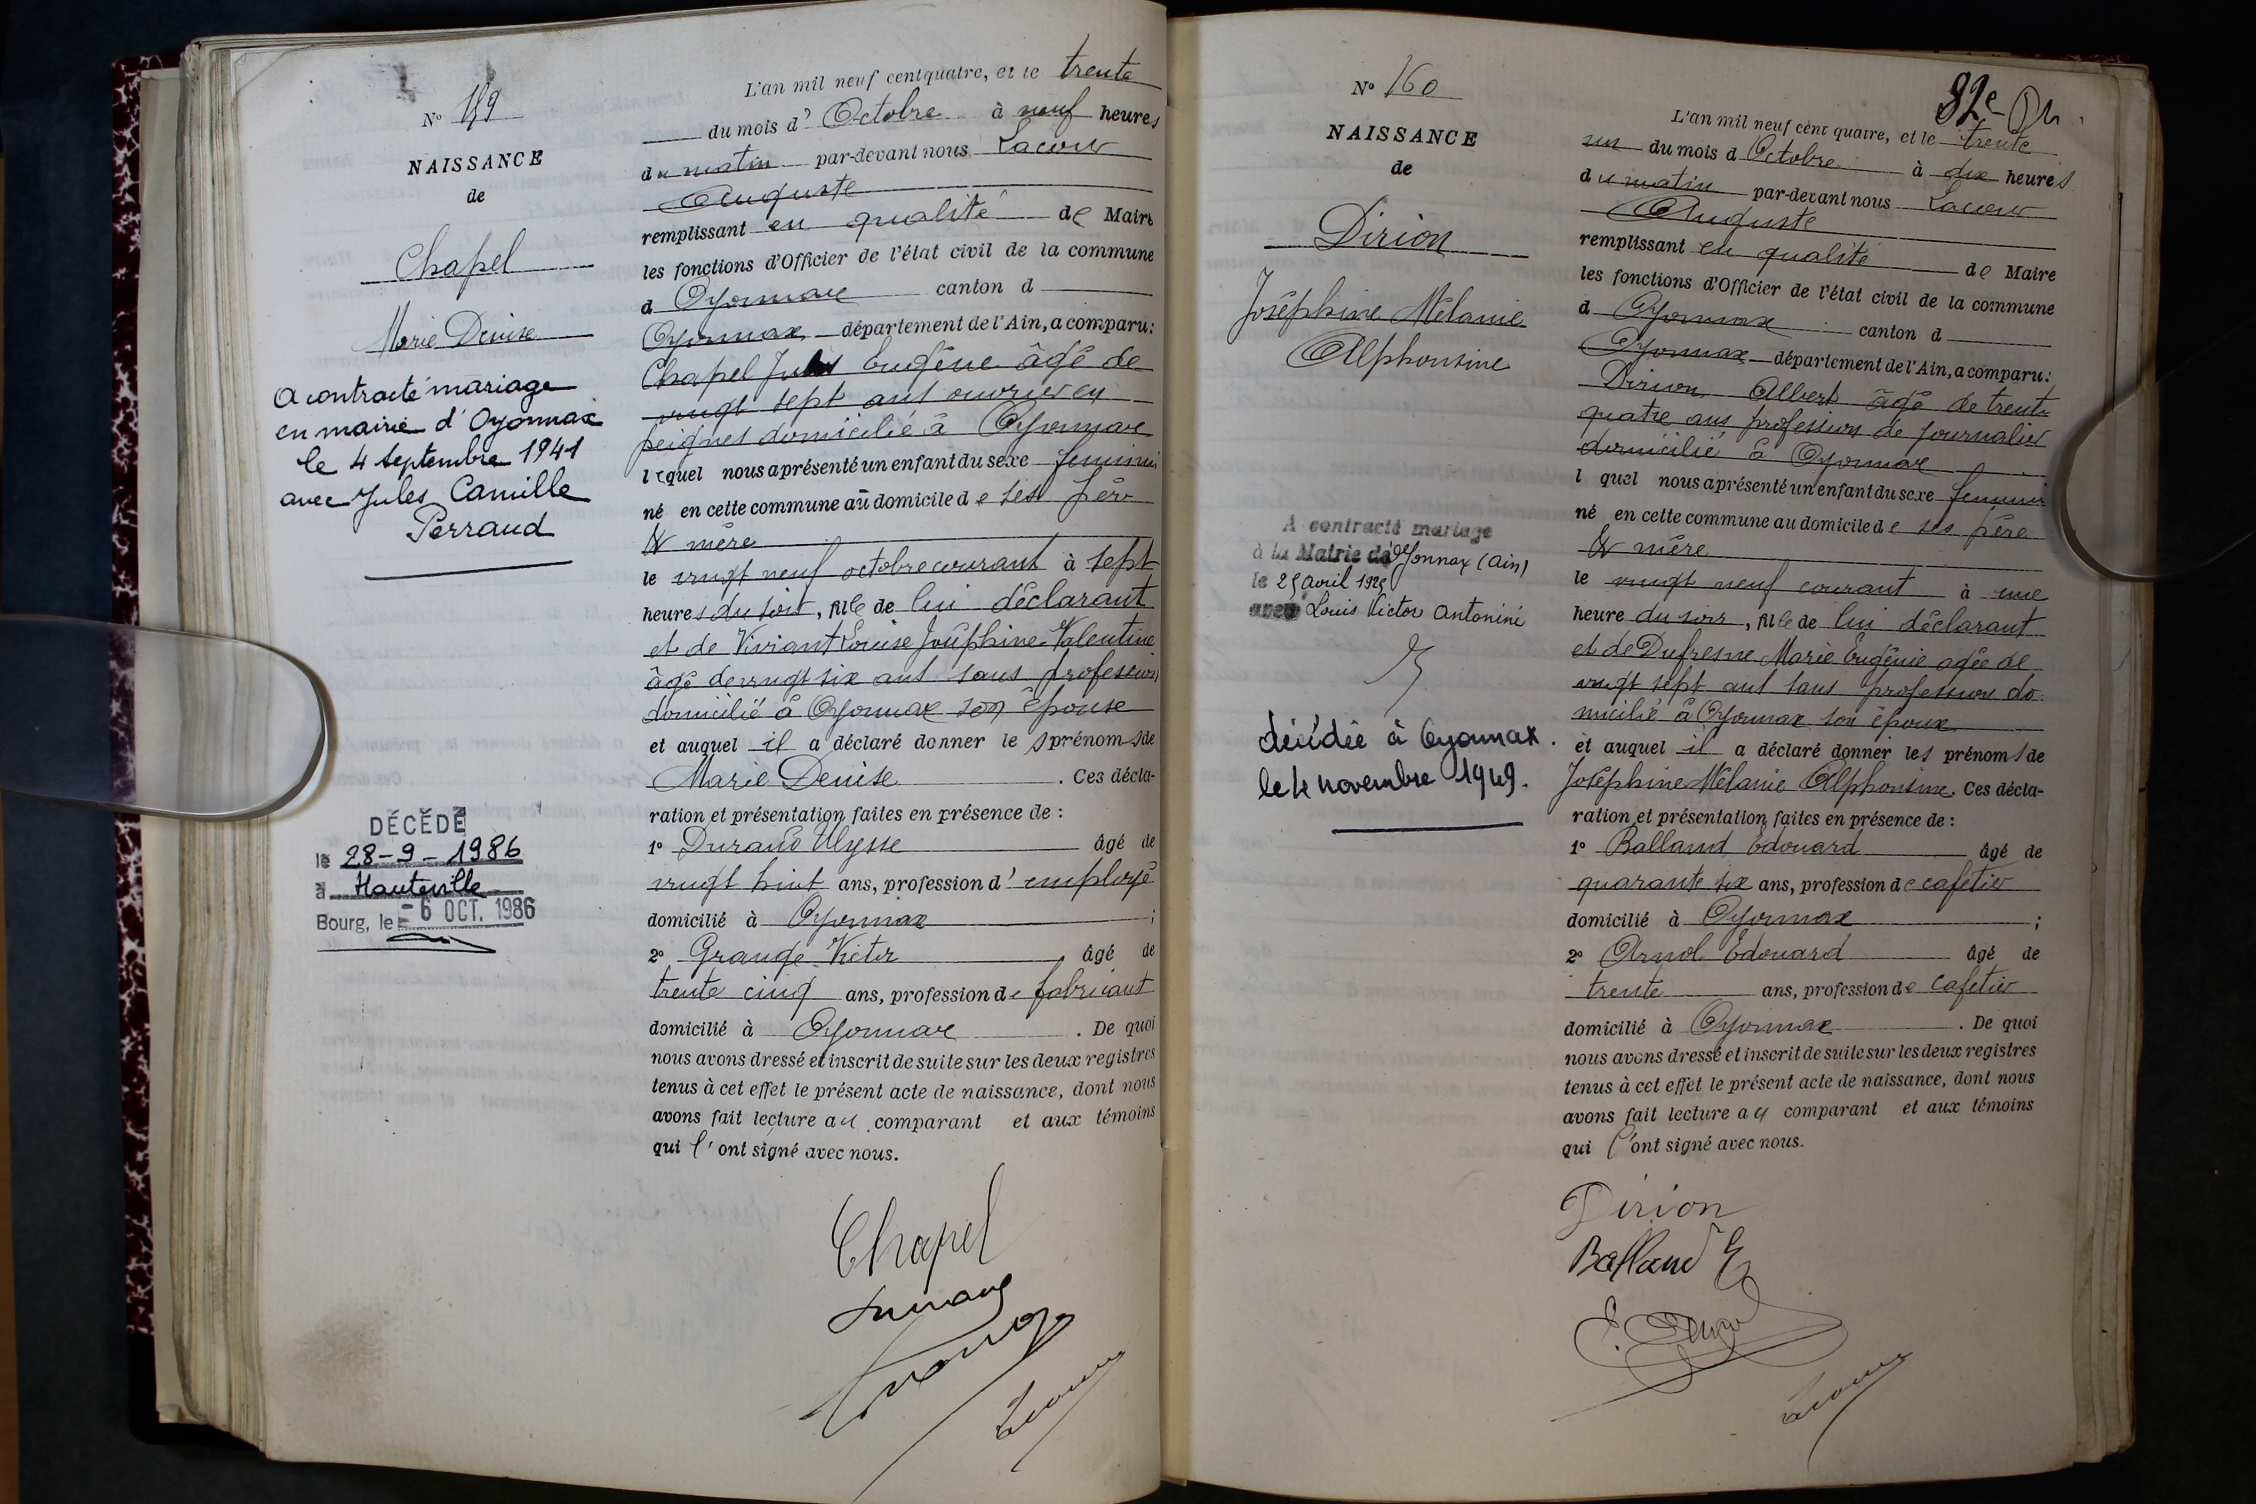 N° 159
NAISSANCE
de
Chapel
Marie Denise
A contracté mariage
en mairie d'Oyonnax
le 4 septembre 1941
avec Jules Camille
Perraud
DÉCÉDÉ
le 28-9-1986
à Hauteville
Bourg, le -6 OCT. 1986
L'an mil neuf cent quatre, et le trente
du mois d'Octobre à neuf heures
du matin par-devant nous Lacour
Auguste
remplissant en qualité de Maire
les fonctions d'Officier de l'état civil de la commune
d Oyonnax canton d
Oyonnax département de l'Ain, a comparu:
Chapel Jules Eugène âgé de
vingt sept ans ouvrier en
peignes domicilié à Oyonnax
lequel nous a présenté un enfant du sexe feminin
né en cette commune au domicile de ses père
& mère
le vingt neuf octobre courant à sept
heures du soir, fille de lui déclarant
et de Viviant Louise Joséphine Valentine
âgé de vingt six ans sans profession
domicilié à Oyonnax son épouse
et auquel il a déclaré donner les prénoms de
Marie Denise. Ces décla-
ration et présentation faites en présence de :
1° Durand Ulysse âgé de
vingt huit ans, profession d'employé
domicilié à Oyonnax ;
2° Grange Victor âgé de
trente cinq ans, profession de fabricant
domicilié à Oyonnax. De quoi
nous avons dressé et inscrit de suite sur les deux registres
tenus à cet effet le présent acte de naissance, dont nous
avons fait lecture au comparant et aux témoins
qui l'ont signé avec nous.
Chapel
Durand
Lacour
N° 160
NAISSANCE
de
Dirion
Joséphine Mélanie
Alphonsine
A contracté mariage
à la Mairie de Oyonnax (Ain)
le 25 avril 1925
avec Louis Victor Antonini
décédée à Oyonnax.
le 4 novembre 1949.
82e
L'an mil neuf cent quatre, et le trente
un du mois d Octobre à dix heures
du matin par-devant nous Lacour
Auguste
remplissant en qualité de Maire
les fonctions d'Officier de l'état civil de la commune
d Oyonnax canton d
Oyonnax département de l'Ain, a comparu:
Dirion Albert âgé de trente
quatre ans profession de journalier
domicilié à Oyonnax
l quel nous a présenté un enfant du sexe feminin
né en cette commune au domicile de ses père
& mère
le vingt neuf courant à une
heure du soir, fille de lui déclarant
et de Dufresne Marie Eugénie agée de
vingt sept ans sans profession do
micilié à Oyonnax son époux
et auquel il a déclaré donner les prénoms de
Joséphine Mélanie Alphonsine. Ces décla-
ration et présentation faites en présence de :
1° Balland Edouard âgé de
quarante six ans, profession de cafetier
domicilié à Oyonnax ;
2° Arnol Edouard âgé de
trente ans, profession de cafetier
domicilié à Oyonnax. De quoi
nous avons dressé et inscrit de suite sur les deux registres
tenus à cet effet le présent acte de naissance, dont nous
avons fait lecture au comparant et aux témoins
qui l'ont signé avec nous.
Dirion
Balland E
Lacour